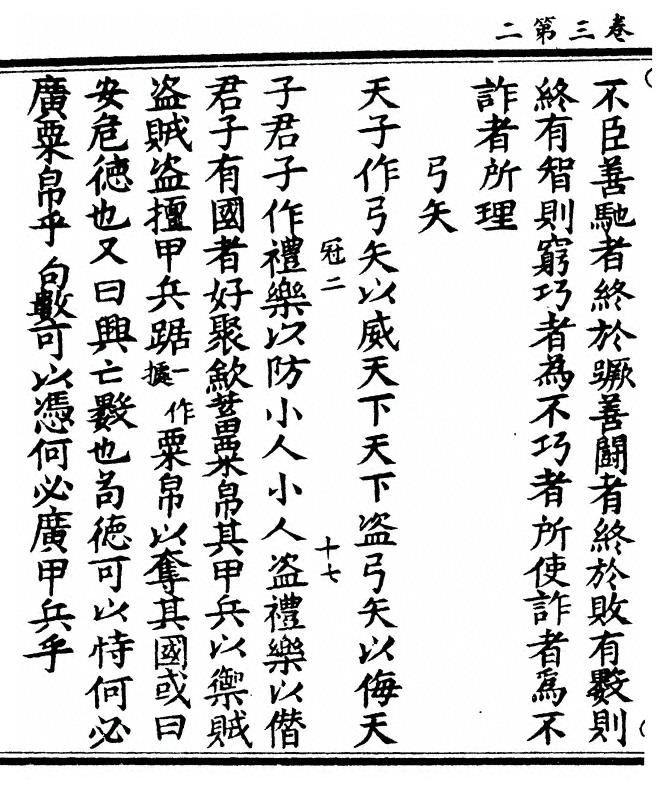 卷三第二
不臣善馳者終於蹶善鬪者終於敗有數則
終有智則窮巧者為不巧者所使詐者為不
詐者所理
弓矢
天子作弓矢以威天下天下盜弓矢以侮天
冠二
十七
子君子作禮樂以防小人小人盜禮樂以僭
君子有國者好聚歛蓄粟帛其甲兵以禦賊
盜賊盜擅甲兵踞一作據粟帛以奪其國或曰
安危德也又曰興亡數也苟德可以恃何必
廣粟帛乎向數可以憑何必廣甲兵乎